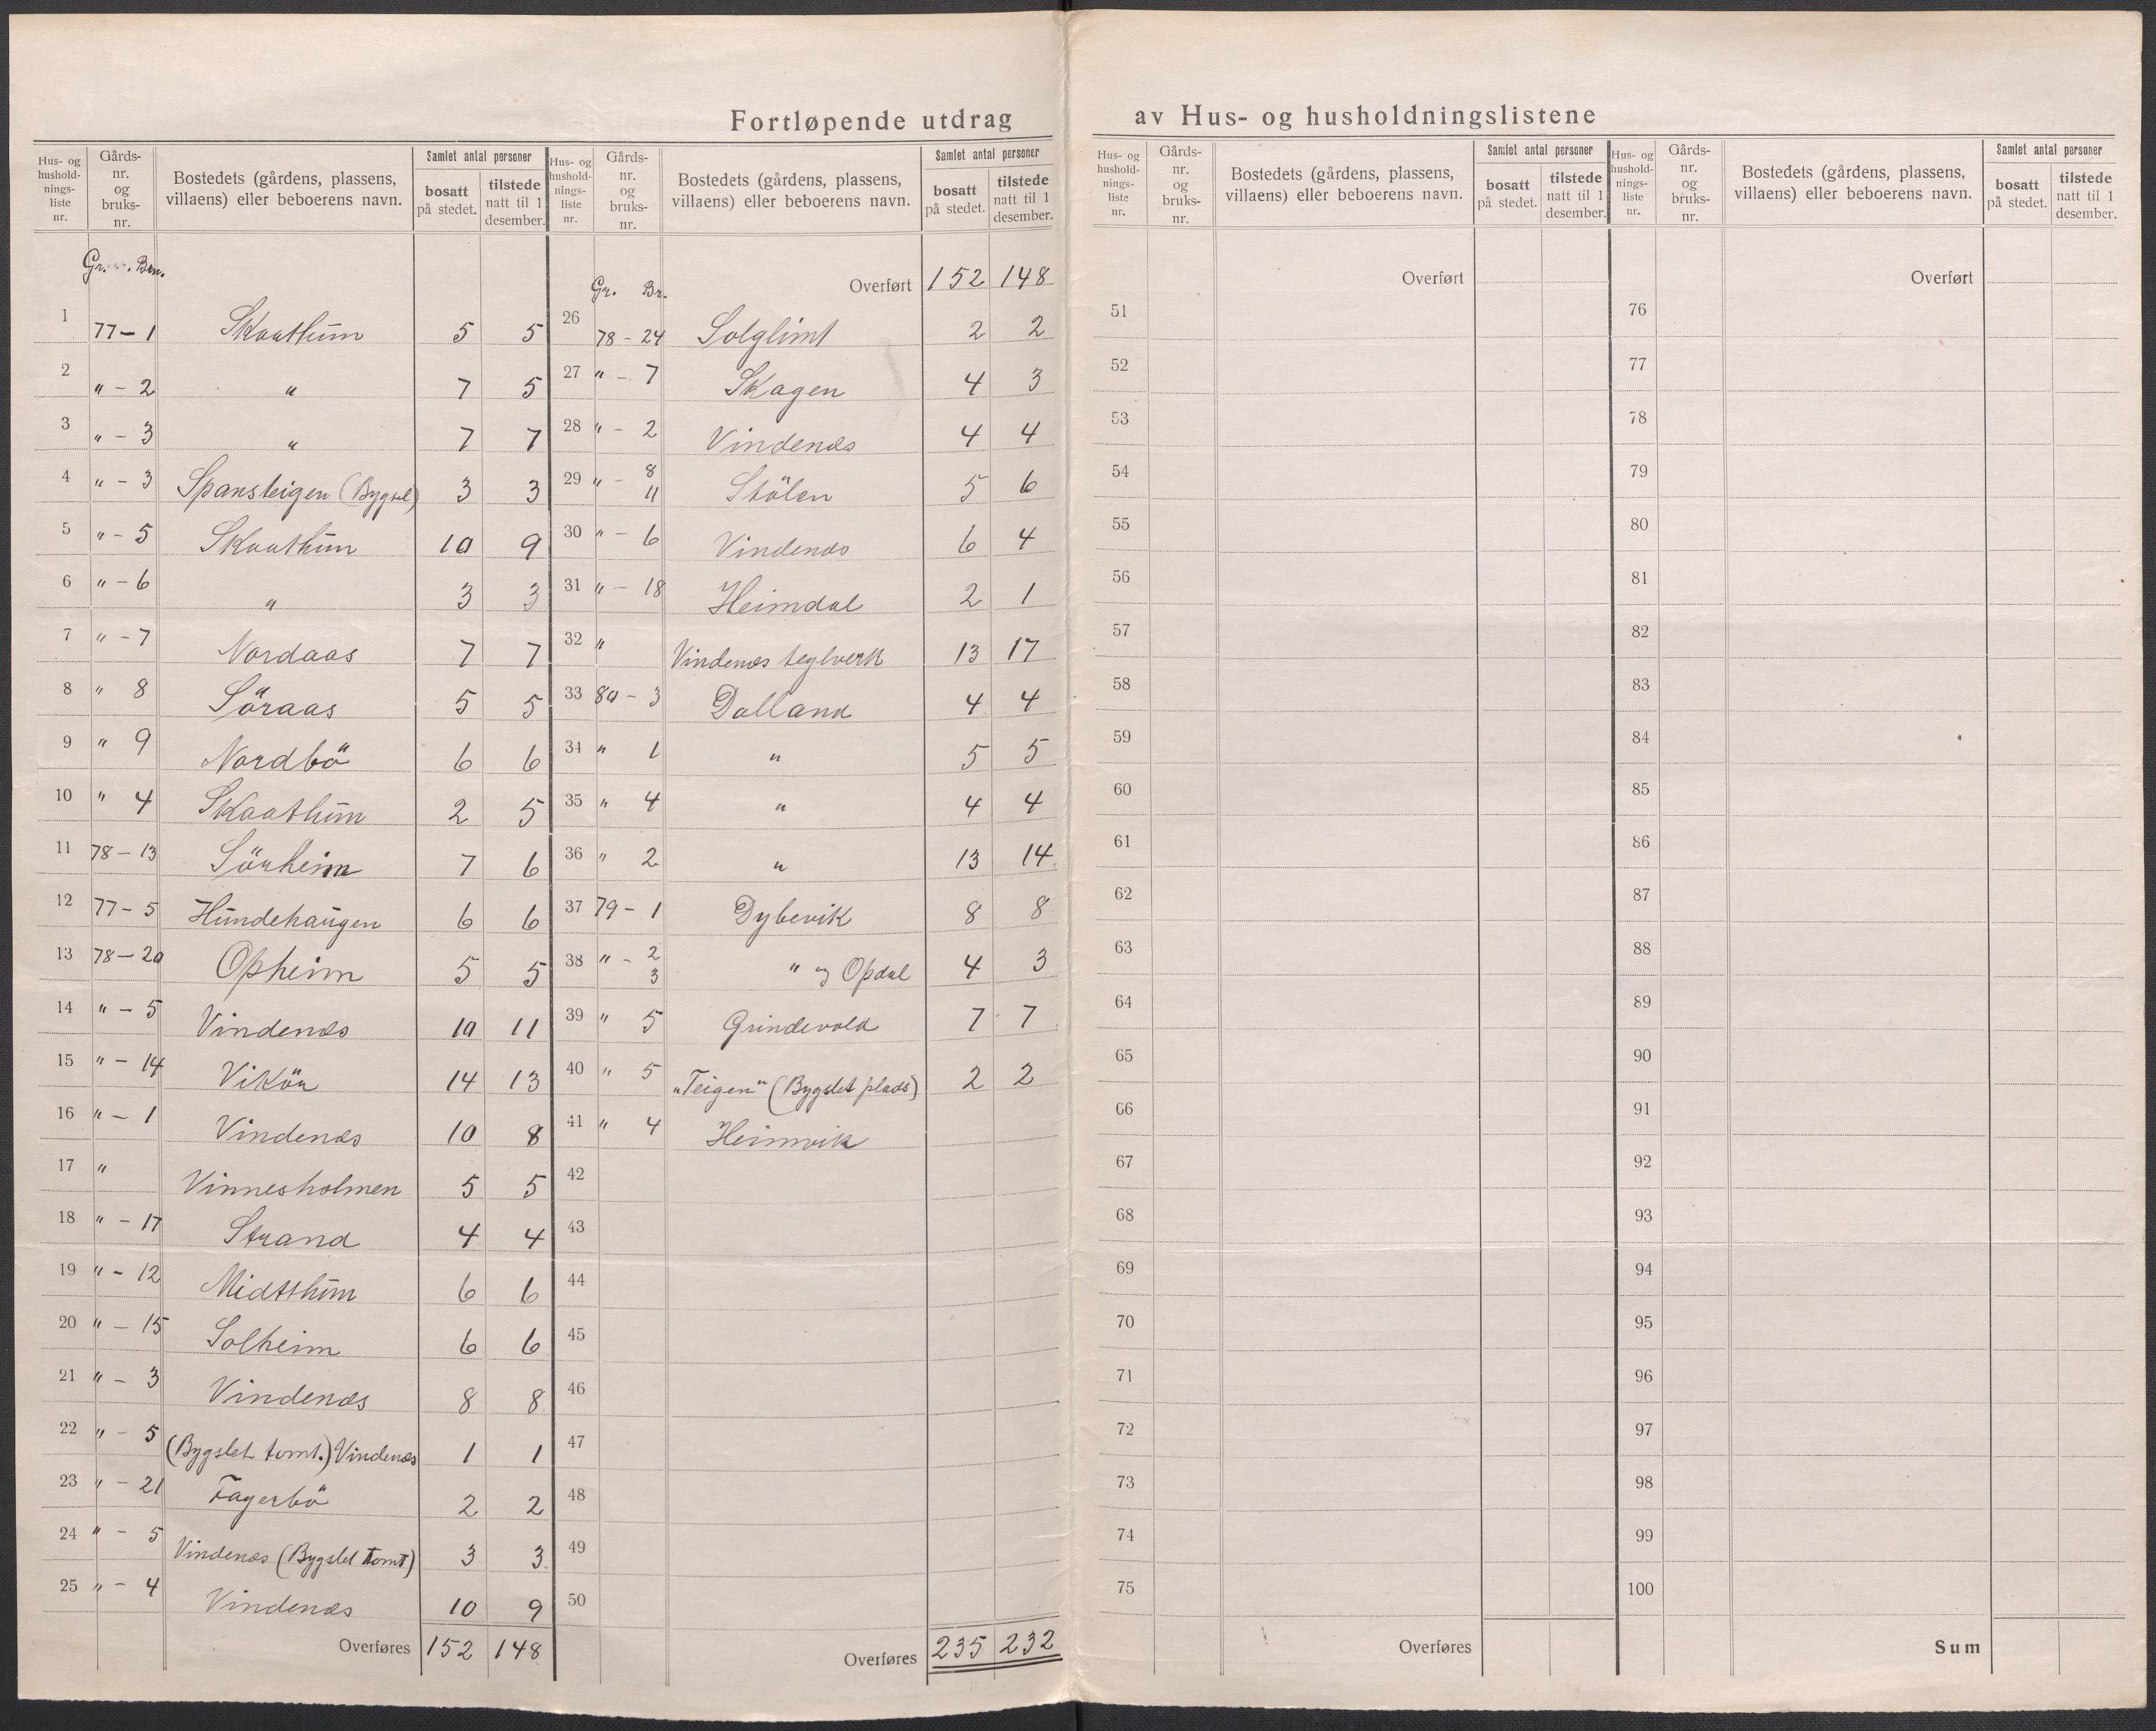 Fortløpende utdrag av Hus- og husholdningslistene
Hus- og hushold-nings-liste nr. | Gårds-nr. og bruks-nr. | Bostedets (gårdens, plassens, villaens) eller beboerens navn. | Samlet antal personer | bosatt på stedet. | tilstede natt til 1 desember.
Brn.
1 77-1 Skaathun 5 5
2 " - 2 " 7 5
3 " - 3 " 7 7
4 " - 3 Spansteigen (Bygsel) 3 3
5 " - 5 Skaathun 10 9
6 " - 6 " 3 3
7 " - 7 Nordaas 7 7
8 " 8 Söraas 5 5
9 " 9 Nordbö 6 6
10 " 4 Skaathun 2 5
11 78-13 Sörheim 7 6
12 77-5 Hundehaugen 6 6
13 78-20 Opheim 5 5
14 " - 5 Vindenæs 10 11
15 " - 14 Vikör 14 13
16 " - 1 Vindenæs 10 8
17 " Vinnesholmen 5 5
18 " - 17 Strand 4 4
19 " - 12 Midtthun 6 6
20 " - 15 Solheim 6 6
21 " - 3 Vindenæs 8 8
22 " - 5 (Bygslet tomt.) Vindenæs 1 1
23 " - 21 Fagerbö 2 2
24 " - 5 Vindenæs (Bygslet tomt) 3 3
25 " - 4 Vindenæs 10 9
Overføres 152 148
Hus- og hushold-nings-liste nr. | Gårds-nr. og bruks-nr. | Bostedets (gårdens, plassens, villaens) eller beboerens navn. | Samlet antal personer | bosatt på stedet. | tilstede natt til 1 desember.
Gr. Br. Overført 152 148
26 78-24 Solglimt 2 2
27 " - 7 Skagen 4 3
28 " - 2 Vindenæs 4 4
29 " - 8 11 Stölen 5 6
30 " - 6 Vindenæs 6 4
31 " - 18 Heimdal 2 1
32 " Vindenæs teglverk 13 17
33 80-3 Dalland 4 4
34 " 1 " 5 5
35 " 4 " 4 4
36 " 2 " 13 14
37 79-1 Dybevik 8 8
38 " - 2 3 " og Opdal 4 3
39 " 5 Grindevold 7 7
40 " 5 "Teigen" (Bygslet plads) 2 2
41 " 4 Heimvik
42
43
44
45
46
47
48
49
50
Overføres 235 232
Hus- og hushold-nings-liste nr. | Gårds-nr. og bruks-nr. | Bostedets (gårdens, plassens, villaens) eller beboerens navn. | Samlet antal personer | bosatt på stedet. | tilstede natt til 1 desember.
Overført
51
52
53
54
55
56
57
58
59
60
61
62
63
64
65
66
67
68
69
70
71
72
73
74
75
Overføres
Hus- og hushold-nings-liste nr. | Gårds-nr. og bruks-nr. | Bostedets (gårdens, plassens, villaens) eller beboerens navn. | Samlet antal personer | bosatt på stedet. | tilstede natt til 1 desember.
Overført
76
77
78
79
80
81
82
83
84
85
86
87
88
89
90
91
92
93
94
95
96
97
98
99
100
Sum